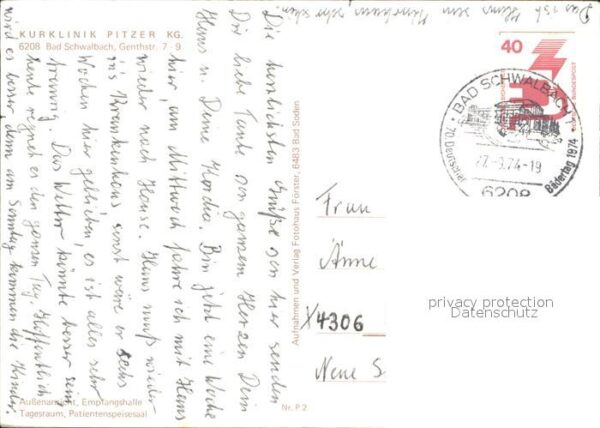 KURKLINIK PITZER KG.
6208 Bad Schwalbach, Genthstr. 7-9.
Die herzlichsten Grüße von hier senden
Dir liebe Tante von ganzem Herzen Dein
Hans u. Deine Kordia. Bin jetzt eine Woche
hier, am Mittwoch fahre ich mit Hans
wieder nach Hause. Hans muß wieder
ins Krankenhaus sonst wäre er sechs
Wochen hier geblieben, es ist alles sehr
traurig. Das Wetter könnte besser sein
heute regnet es den ganzen Tag. Hoffentlich
wird es besser, denn am Sonntag kommen die Kinder.
Das ist Hans sein sehr schön.
Außenansicht, Empfangshalle
Tagesraum, Patientenspeisesaal
Nr. P 2
Aufnahmen und Verlag Fotohaus Förster, 6483 Bad Soden
40
DEUTSCHE BUNDESPOST
BAD SCHWALBACH 1
70. Deutscher Bädertag 1974
-9.74-19
6208
Frau
Änne
4306
Neue S
privacy protection
Datenschutz